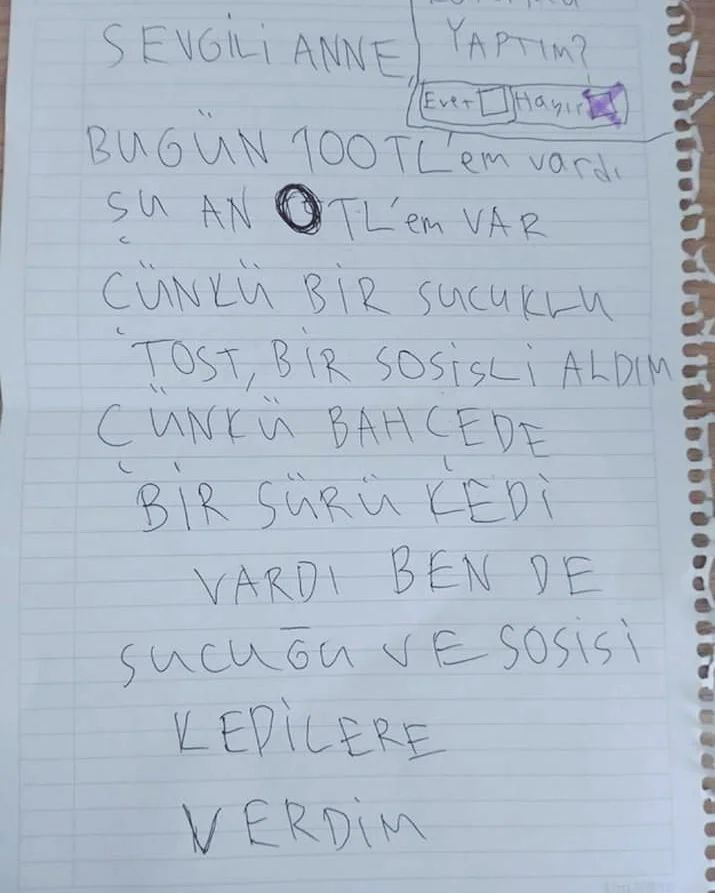 SEVGİLİ ANNE,
YAPTIM?
Evet Hayır
BUGÜN 100 TL'em vardı
ŞU AN 0 TL'em VAR
ÇÜNKÜ BİR SUCUKLU
TOST, BİR SOSİSLİ ALDIM
ÇÜNKÜ BAHÇEDE
BİR SÜRÜ KEDİ
VARDI BEN DE
SUCUĞU VE SOSİSİ
KEDİLERE
VERDİM